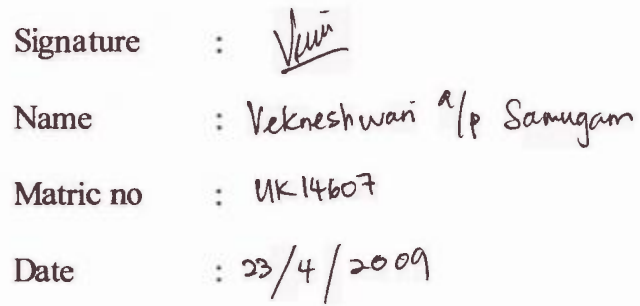 Signature :
Name : Vekneshwari a/p Samugam
Matric no : UK14607
Date : 23/4/2009